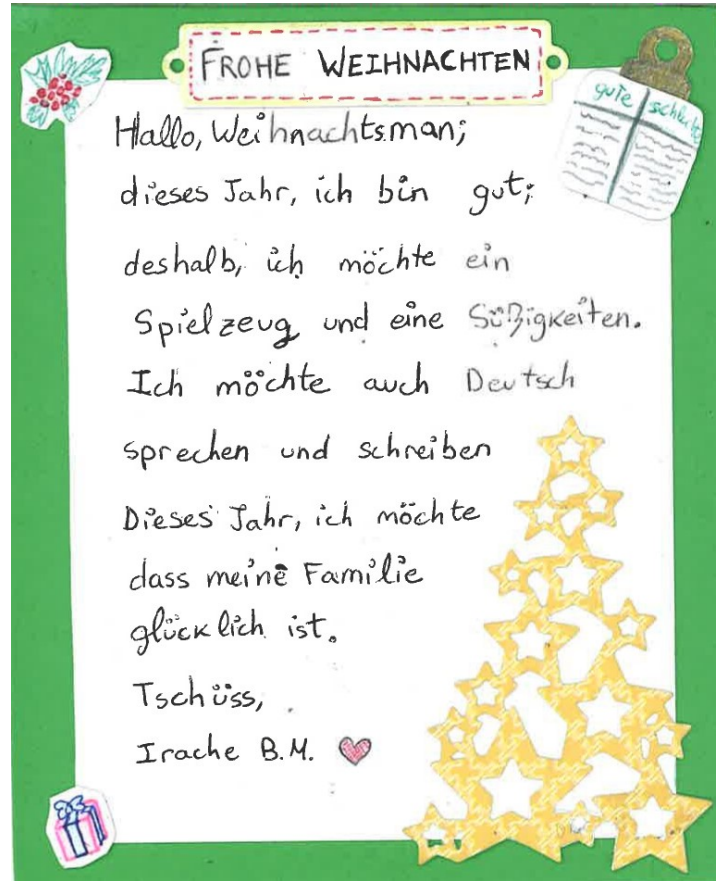 FROHE WEIHNACHTEN
gute schlecht
Hallo, Weihnachtsman;
dieses Jahr, ich bin gut;
deshalb, ich möchte ein
Spielzeug und eine Süßigkeiten.
Ich möchte auch Deutsch
sprechen und schreiben
Dieses Jahr, ich möchte
dass meine Familie
glücklich ist.
Tschüss,
Irache B.M.